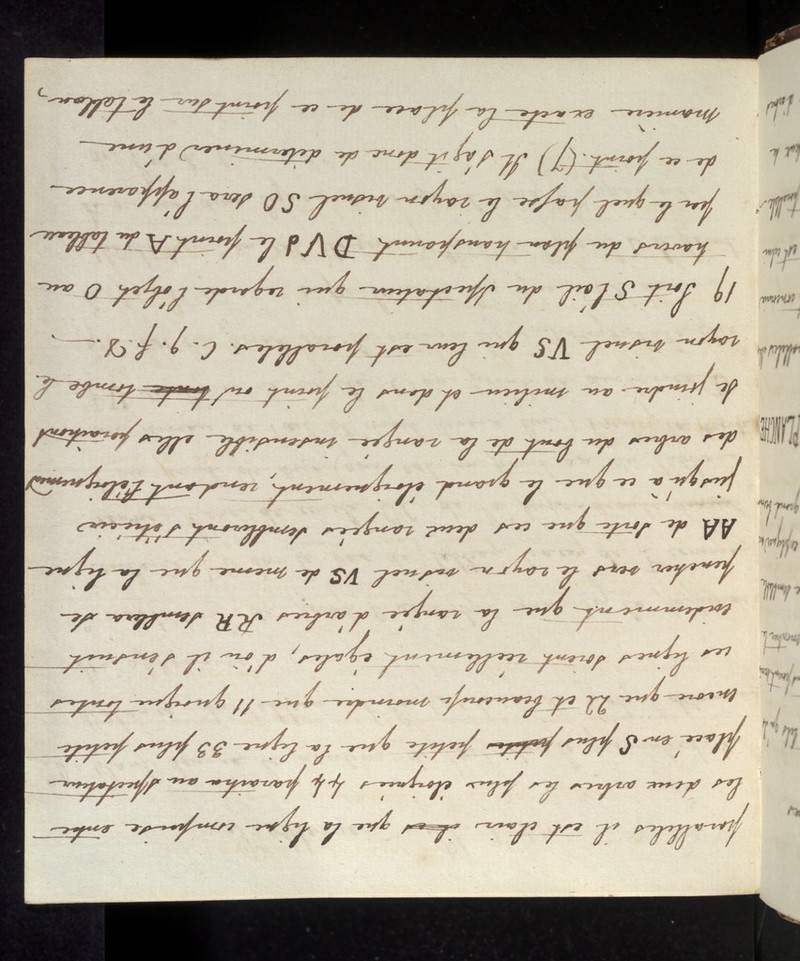 paralleles il est clair que la ligne comprise entre
les deux arbres les plus éloignés 44 paraitra au spectateur
placé en S plus petite que la ligne 33 plus petite
encore que 22 et beaucoup moindre que 11 quoique toutes
ces lignes soient réellement égales, d'où il s'ensuit
évidemment que la rangée d'arbres RR semblera se
pencher vers le rayon visuel VS de meme que la ligne
AA de sorte que ces deux rangées sembleront s'étrécir
jusqu'à ce que le grand éloignement, rendant
des arbres du bout de la rangée insensible elles paraitront
se joindre au milieu et dans le point où tombe le
rayon visuel VS qui leur est paralleles. C. q. f. D.
19 Soit S l'œil du spectateur qui regarde l'objet O au
travers du plan transparent DV le point A du tableau
par le quel passe le rayon visuel SO sera l'apparence
de ce point. (7) Il s'agit donc de déterminer d'une
maniere exacte la place de ce point sur le tableau,
PLANCHE